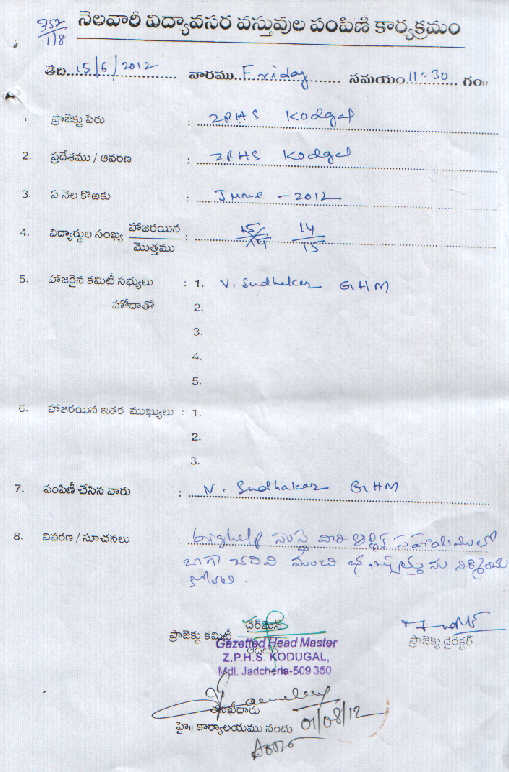 352/118
నెలవారీ విద్యావసర వస్తువుల పంపిణీ కార్యక్రమం
తేది. 15/6/2012 వారము. Friday సమయం 11-30 గం॥
1. ప్రాజెక్టు పేరు : ZPHS Kodgal
2. ప్రదేశము / ఆవరణ : ZPHS Kodgal
3. ఏ నెల కొఱకు : June - 2012
4. విద్యార్థుల సంఖ్య హాజరయిన / మొత్తము : 15/14 14/15
5. హాజరైన కమిటీ సభ్యులు : 1. V. Sudhakar GHM
హోదాతో 2.
3.
4.
5.
6. హాజరయిన ఇతర ముఖ్యులు : 1.
2.
3.
7. పంపిణీ చేసిన వారు : V. Sudhakar GHM
8. వివరణ / సూచనలు : bighelp సంస్థ వారి ఆర్థిక సహాయముతో
బాగా చదివి మంచి
ప్రాజెక్టు కమిటీ
ప్రాజెక్టు డైరెక్టర్
Gazetted Head Master
Z.P.H.S. KODUGAL,
Mdl. Jadcherla-509 350
హై॥ కార్యాలయము నందు 01/08/12